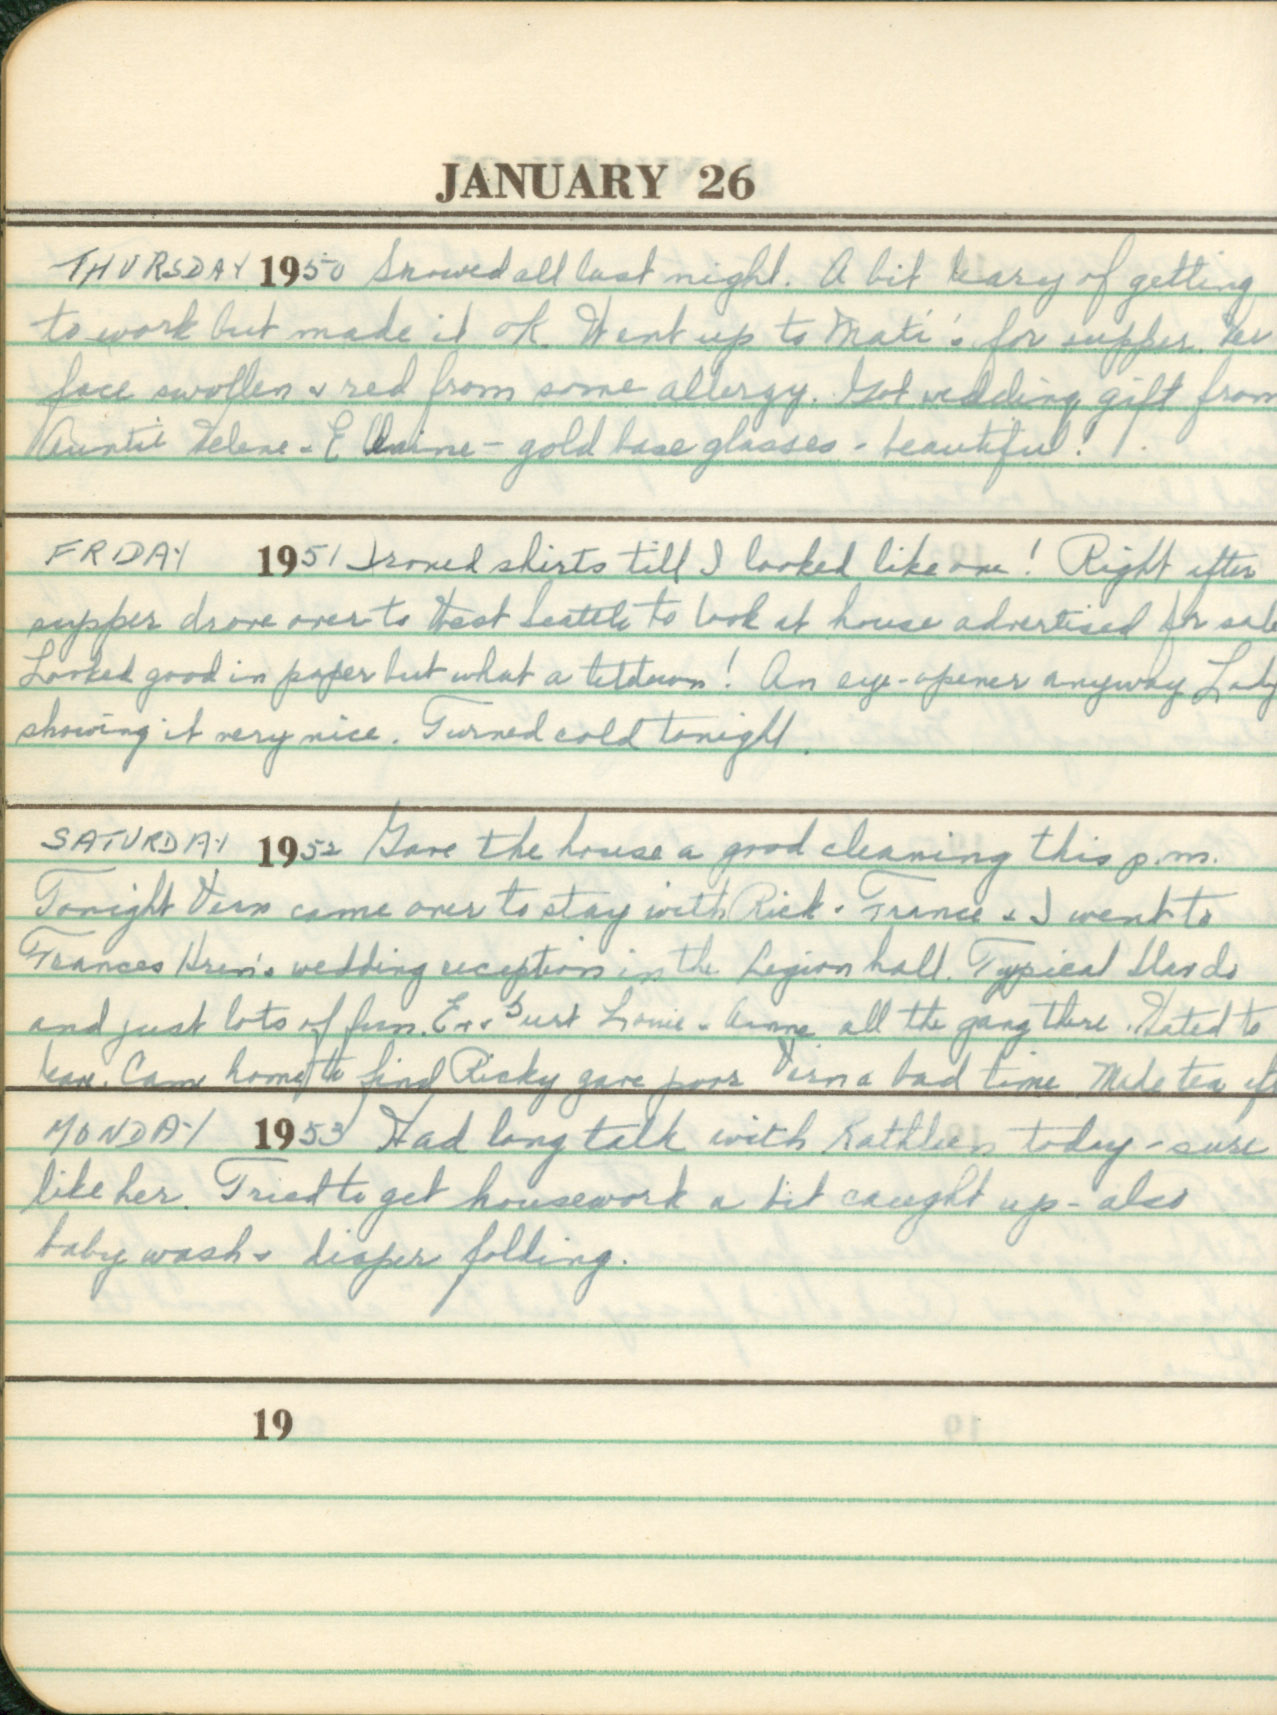 JANUARY 26
THURSDAY 1950 Snowed all last night. A bit leary of getting
to work but made it ok. Went up to Mati's for supper. Her
face swollen & red from some allergy. Got wedding gift from
Auntie Helene & Elaine - gold base glasses - beautiful!
FRIDAY 1951 Ironed shirts till I looked like one! Right after
supper drove over to West Seattle to look at house advertised for sale
Looked good in paper but what a letdown! An eye-opener anyway Lady
showing it very nice. Turned cold tonight.
SATURDAY 1952 Gave the house a good cleaning this p.m.
Tonight Vern came over to stay with Rick & France & I went to
Frances wedding reception in the Legion hall. Typical
and just lots of fun. Louie & all the gang there. Hated to
leave. Came home to find Ricky gave poor Vern a bad time Made tea
MONDAY 1953 Had long talk with Kathleen today - sure
like her. Tried to get housework a bit caught up - also
baby wash & diaper folding.
19